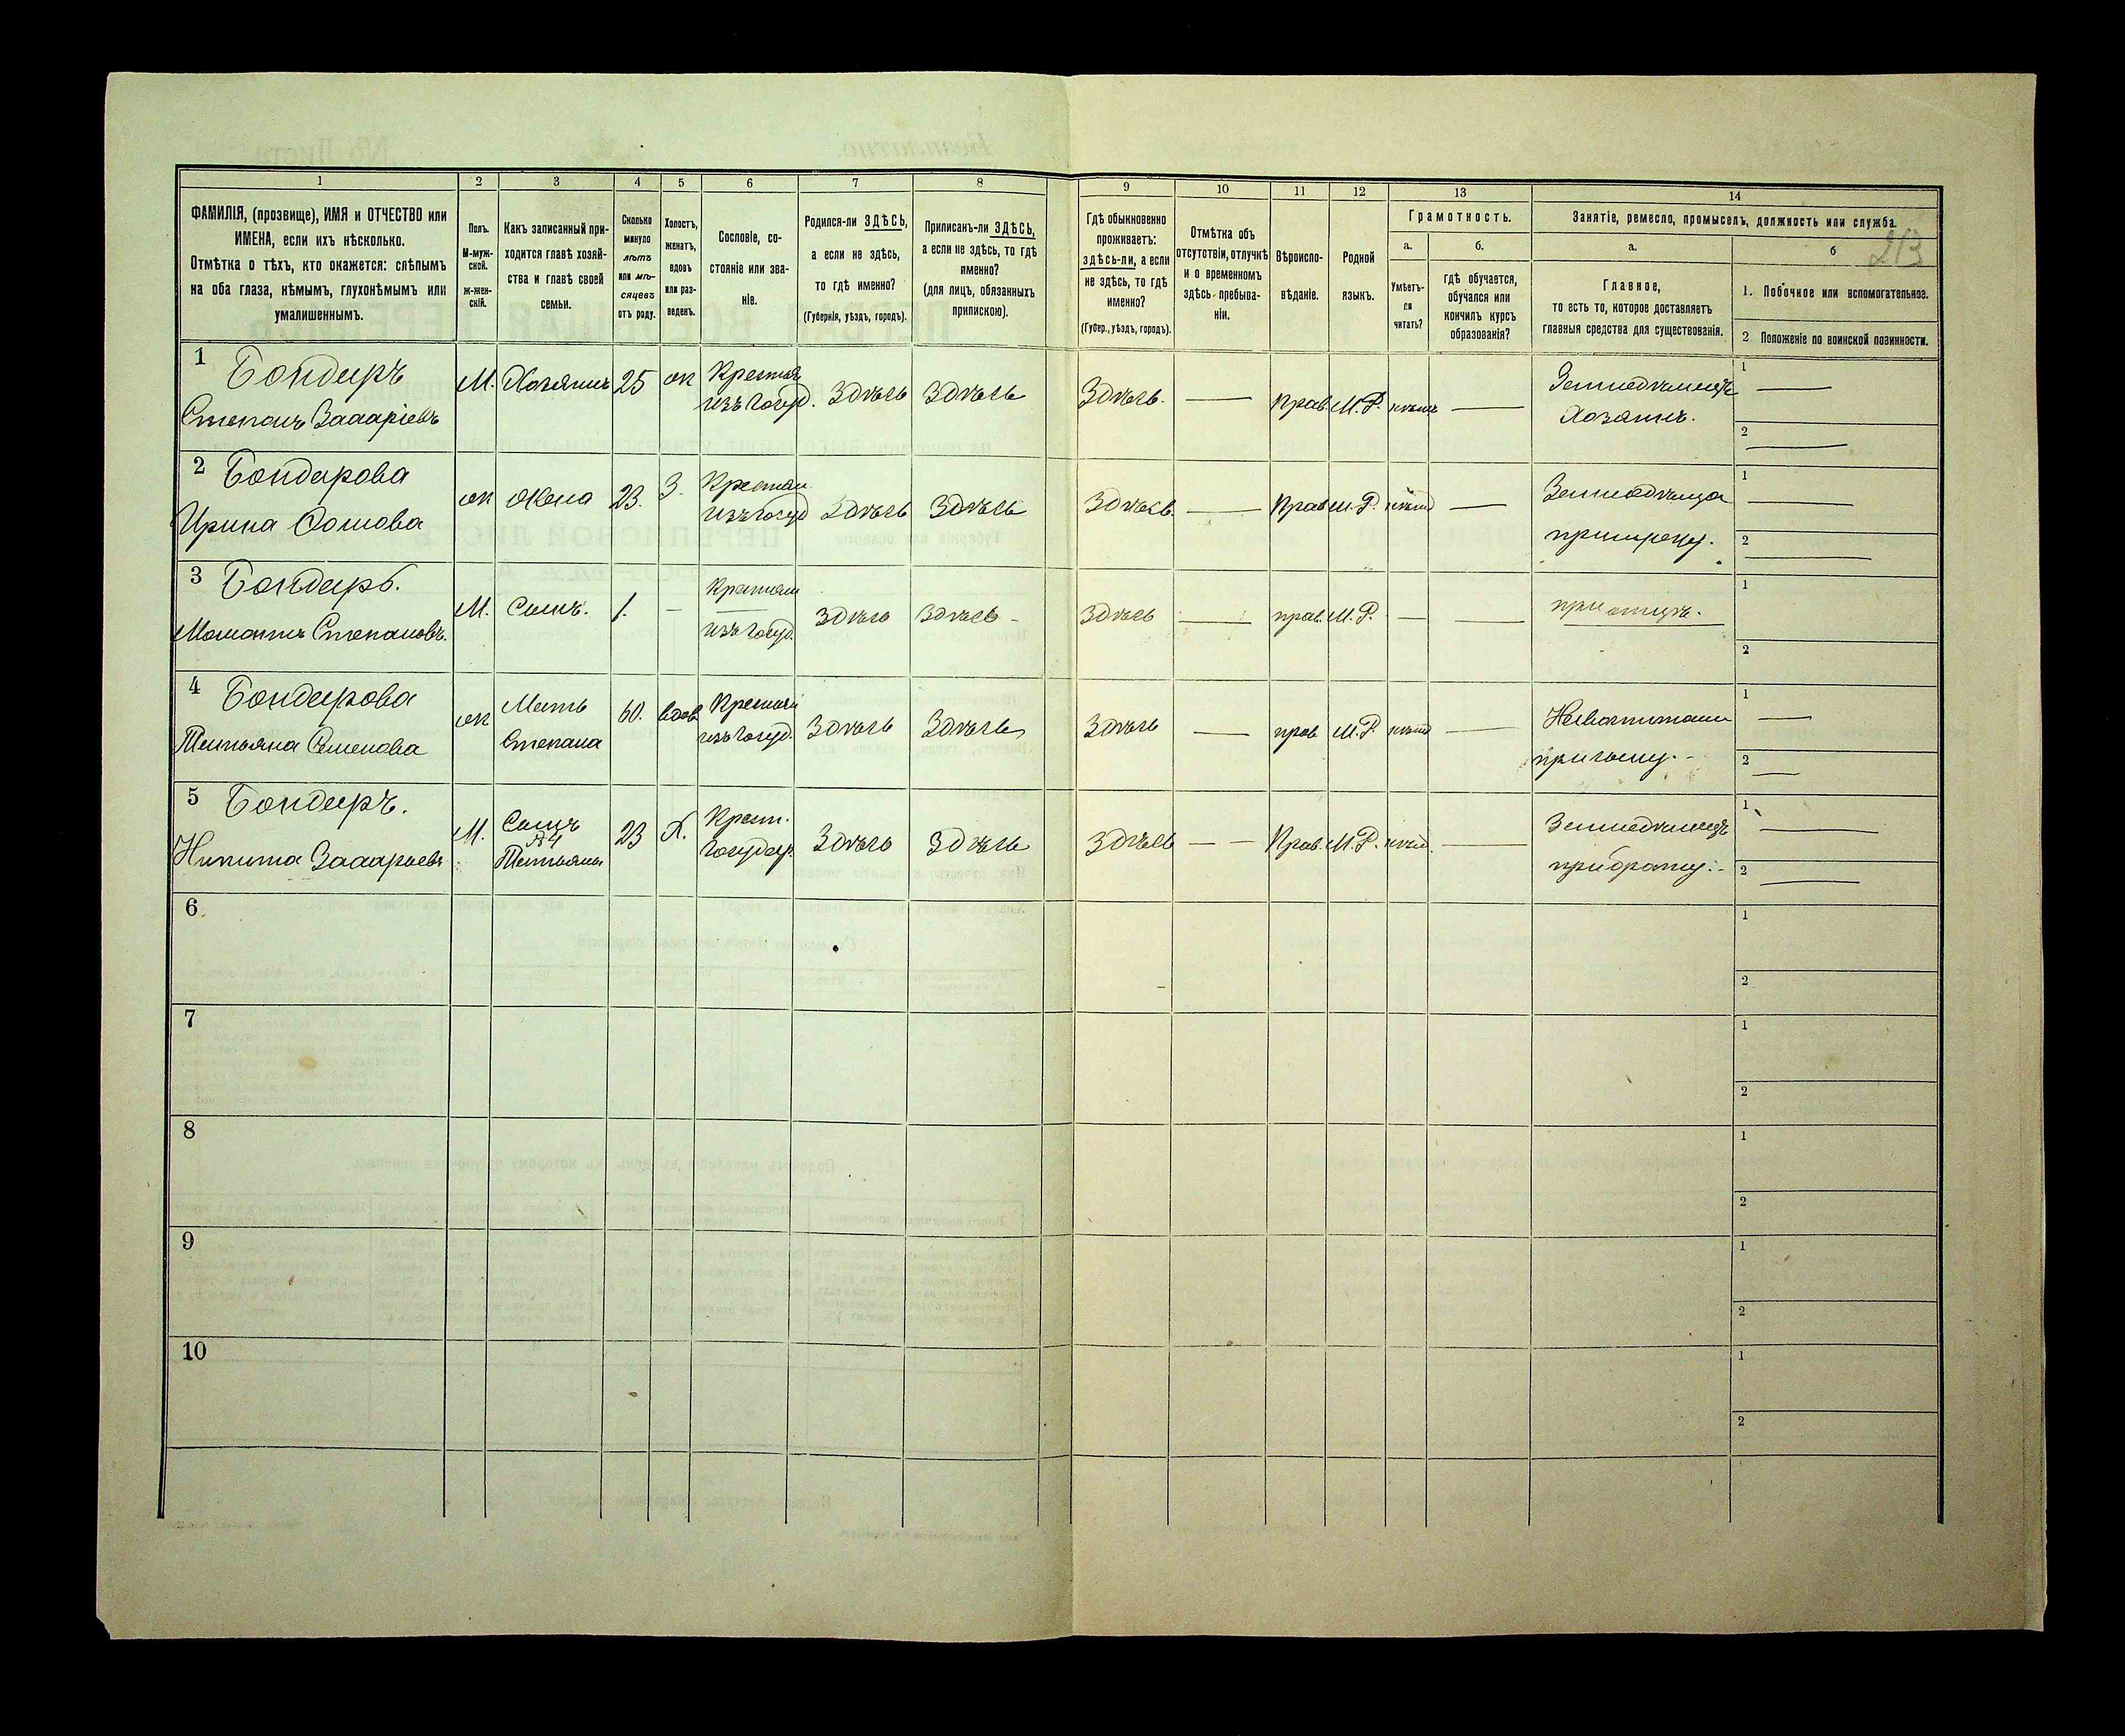 213
1 2 3 4 5 6 7 8 9 10 11 12 13 14
ФАМИЛІЯ, (прозвище), ИМЯ и ОТЧЕСТВО или
ИМЕНА, если ихъ нѣсколько.
Отмѣтка о тѣхъ, кто окажется: слѣпымъ
на оба глаза, нѣмымъ, глухонѣмымъ или
умалишеннымъ.
Полъ.
М-муж-
ской.
ж-жен-
скій.
Какъ записанный при-
ходится главѣ хозяй-
ства и главѣ своей
семьи.
Сколько
минуло
лѣтъ
или мѣ-
сяцевъ
отъ роду.
Холостъ,
женатъ,
вдовъ
или раз-
веденъ.
Сословіе, со-
стояніе или зва-
ніе.
Родился-ли ЗДѢСЬ,
а если не здѣсь,
то гдѣ именно?
(Губернія, уѣздъ, городъ).
Приписанъ-ли ЗДѢСЬ,
а если не здѣсь, то гдѣ
именно?
(для лицъ, обязанныхъ
припискою).
Гдѣ обыкновенно
проживаетъ:
здѣсь-ли, а если
не здѣсь, то гдѣ
именно?
(Губер., уѣздъ, городъ).
Отмѣтка объ
отсутствіи, отлучкѣ
и о временномъ
здѣсь пребыва-
ніи.
Вѣроиспо-
вѣданіе.
Родной
языкъ.
Грамотность.
а.
Умѣетъ-
ли
читать?
б.
гдѣ обучается,
обучался или
кончилъ курсъ
образованія?
Занятіе, ремесло, промыселъ, должность или служба.
а.
Главное,
то есть то, которое доставляетъ
главныя средства для существованія.
б
1. Побочное или вспомогательное.
2 Положеніе по воинской повинности.
1 Бондарь
Степанъ Захаріевъ
М. Хозяинъ 25 ж Крестья
изъ Госуд. Здѣсь Здѣсь Здѣсь. — Прав. М.Р. нѣтъ — Земледѣлецъ
Хозяинъ.
1 —
2 —
2 Бондарова
Ирина
ж жена 23. З. Крестьян
изъ Госуд Здѣсь Здѣсь Здѣсь. — Прав М.Р. нѣтъ — Земледѣлица
при мужу.
1 —
2 —
3 Бондарь.
Степановъ.
М. Сынъ. 1. — Крестьян
изъ Госуд. Здѣсь Здѣсь - Здѣсь — прав. М.Р. — — при отцѣ.
1
2
4 Бондарова
Татьяна Семенова
ж Мать
Степана
60. вдов Крестьян
изъ Госуд. Здѣсь Здѣсь Здѣсь — прав М.Р. нѣтъ —
при сыну.
1 —
2 —
5 Бондарь.
Никита Захарьевъ
М. Сынъ
№4
Татьяны
23 Х. Крест.
Государ. Здѣсь Здѣсь Здѣсь — — Прав. М.Р. нѣтъ. — Земледѣлецъ
при брату.
1 —
2 —
6
1
2
7
1
2
8
1
2
9
1
2
10
1
2